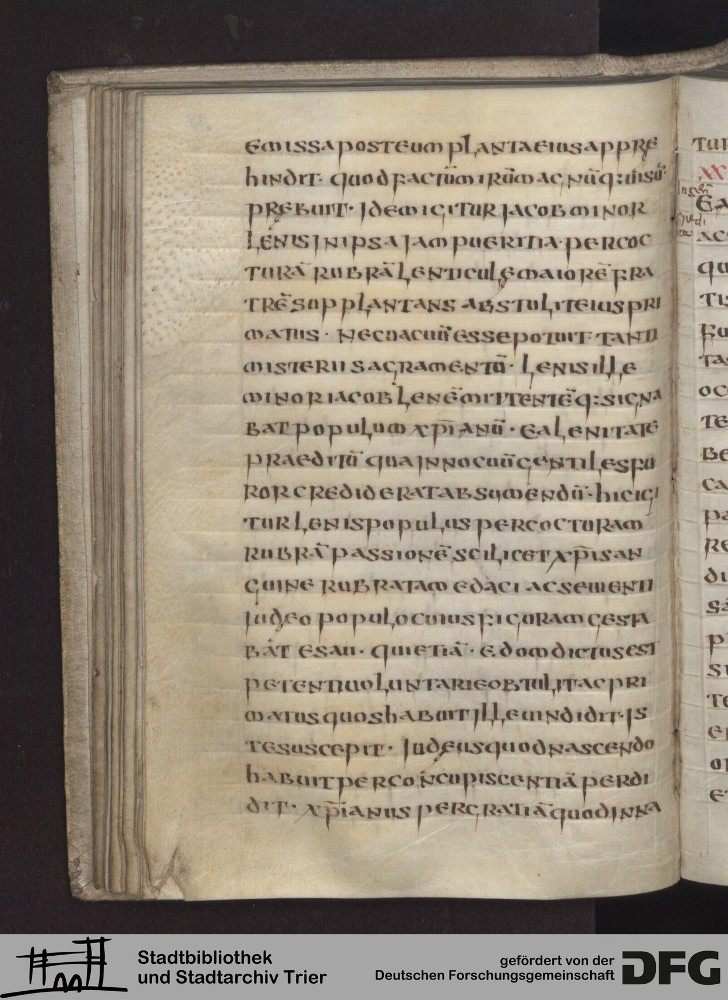 emissa posteum plantaeius appre
hindit · quod factūmirūmac nūq: uisū ·
prebuit · Idemigitur jacob minor
lenis jnipsa jam pueritia · percoc
turā rubrā lenticulę maiorē fra
trē supplantans abstulit eius pri
matus · necuacuū esse potuit · tanti
misterii sacramentū · lenis ille
minor iacob lenē mittentēq: signa
bat populum xp̄ianū · ea lenitate
praeditū qua jnnocuū gentiles fu
ror crediderat absumendū · hic igi
tur lenis populus percocturam
rubrā passionē scilicet xp̄i san
guine rubratam edaci ac seuienti
iudeo populo cuius figuram gesta
bāt esau · qui etiā · edom dictus est
petenti uoluntarie obtulit ac pri
matus quos habuit ille uindidit · is
te suscepit · Iudeus quod nascendo
habuit per concupiscentiā perdi
dit · xp̄ianus per gratiā quod inna
Stadtbibliothek
und Stadtarchiv Trier
gefördert von der
Deutschen Forschungsgemeinschaft
DFG